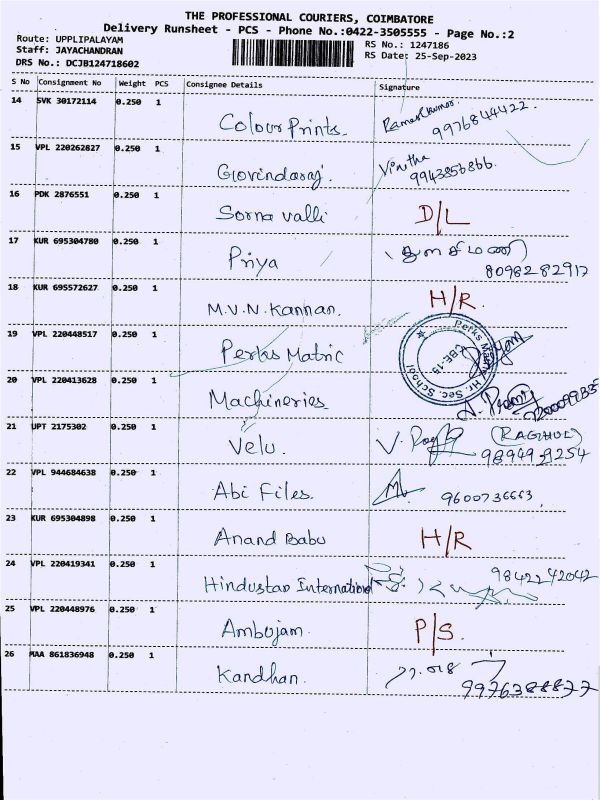 THE PROFESSIONAL COURIERS, COIMBATORE
Delivery Runsheet - PCS - Phone No.:0422-3505555 - Page No.:2
Route: UPPLIPALAYAM
RS No.: 1247186
Staff: JAYACHANDRAN
RS Date: 25-Sep-2023
DRS No.: DCJB124718602
S No Consignment No Weight PCS Consignee Details Signature
14 SVK 30172114 0.250 1
Colour Prints. Rameshkumar 9976844422.
15 VPL 220262827 0.250 1
Govindaraj. Vinitha 9943856866.
16 PDK 2876551 0.250 1
Sorna valli D/L
17 KUR 695304780 0.250 1
Priya துளசிமணி
8098282917
18 KUR 695572627 0.250 1
M.V.N. Kannan. H/R.
19 VPL 220448517 0.250 1
Perks Matric Perks Matric Hr. Sec. School CBE-15
20 VPL 220413628 0.250 1
Machineries
21 UPT 2175302 0.250 1
Velu. (RAGHUL)
98949-9254
22 VPL 944684638 0.250 1
Abi Files. 9600736663,
23 KUR 695304898 0.250 1
Anand Babu H/R
24 VPL 220419341 0.250 1
Hindustan International 9842242042
25 VPL 220448976 0.250 1
Ambujam. P/S.
26 MAA 861836948 0.250 1
Kandhan.
9976388877